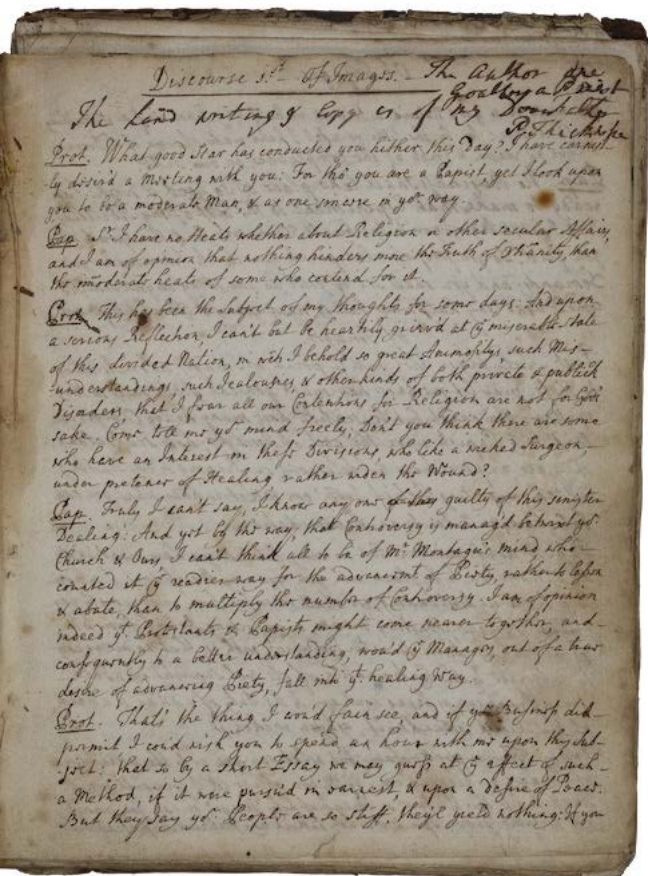 Discourse 1st. Of Images. The Author one
Goather a Priest
The hand writing & Copy is of my
R. Thickn
Prot. What good Star has conducted you hither this Day? I have earnest-
ly desir'd a Meeting with you: For tho' you are a Papist, yet I look upon
you to be a moderate Man, & as one sincere in yor. way.
Pap. Sr. I have no Heats whether about Religion or other secular Affairs,
and I am of opinion that nothing hinders more the Truth of Xtianity, than
the im̄oderate heats of some who contend for it.
Prot. This has been the Subject of my thoughts for some days: And upon
a serious Reflection, I can't but be heartily griev'd at ye miserable state
of this divided Nation, in wch I behold so great Animositys, such Mis-
-understandings, such Jealousies, & other kinds of both private & publick
Disorders that I fear all our Contentions for Religion are not for God's
sake. Come tell me yor. mind freely; Don't you think there are some
who have an Interest in these Divisions, who like a wicked Surgeon,
under pretence of Healing, rather widen the Wound?
Pap. Truly I can't say, I know any one guilty of this sinister
Dealing: And yet by the way, that Controversy is manag'd betwixt yor.
Church & Ours, I can't think all to be of Mr. Montague's mind who
counted it ye readier way for the advancemt. of Piety, rather to lessen
& abate, than to multiply the number of Controversy. I am of opinion
indeed yt. Protestants & Papists might come nearer together, and
consequently to a better understanding, wou'd ye Managers, out of a true
desire of advancing Piety, fall into yt. healing way.
Prot. That's the thing I wou'd fain see, and if yor. Business did
permit I cou'd wish you to spend an hour with me upon this Sub-
-ject: that so by a short Essay we may guess at ye effect of such
a Method, if it were pursu'd in earnest, & upon a desire of Peace.
But they say yor. People are so stiff, they'l yield nothing: If you